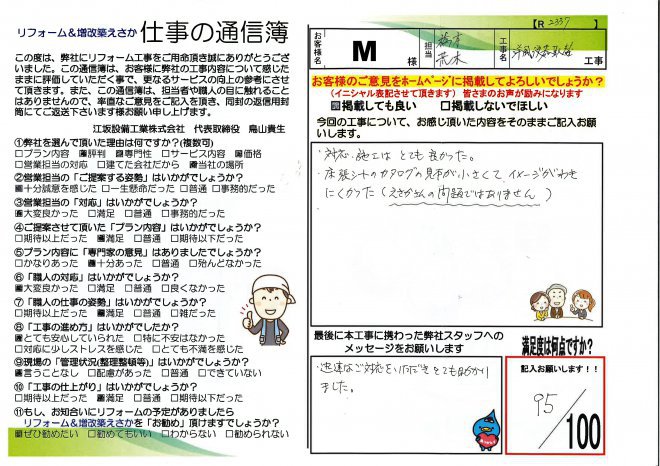 リフォーム＆増改築えさか 仕事の通信簿
この度は、弊社にリフォーム工事をご用命頂き誠にありがとうござ
いました。この通信簿は、お客様に弊社の工事内容について感じた
ままに評価していただく事で、更なるサービスの向上の参考にさせ
て頂きます。また、この通信簿は、担当者や職人の目に触れること
はありませんので、率直なご意見をご記入を頂き、同封の返信用封
筒にてご返送下さいます様お願い申し上げます。
江坂設備工業株式会社 代表取締役 鳥山貴生
①弊社を選んで頂いた理由は何ですか?(複数可)
□プラン内容 ■評判 ■専門性 □サービス内容 ■価格
□営業担当の対応 □建てた会社だから ■当社の場所
②営業担当の「ご提案する姿勢」はいかがでしょうか?
■十分誠意を感じた □一生懸命だった □普通 □事務的だった
③営業担当の「対応」はいかがでしょうか?
■大変良かった □満足 □普通 □事務的だった
④ご提案させて頂いた「プラン内容」はいかがでしょうか?
□期待以上だった ■満足 □普通 □期待以下だった
⑤プラン内容に「専門家の意見」はありましたでしょうか?
□かなりあった ■十分あった □普通 □殆んどなかった
⑥「職人の対応」はいかがでしょうか?
■大変良かった □満足 □普通 □良くなかった
⑦「職人の仕事の姿勢」はいかがでしょうか?
□期待以上だった ■満足 □普通 □雑だった
⑧「工事の進め方」はいかがでしたか?
■とても安心していられた □特に不安はなかった
□対応に少しストレスを感じた □とても不満を感じた
⑨現場の「管理状況(整理整頓等)」はいかがでしょうか?
■言うことなし □配慮があった □普通 □できていない
⑩「工事の仕上がり」はいかがでしょうか?
□期待以上だった ■満足 □普通 □期待以下だった
⑪もし、お知合いにリフォームの予定がありましたら
リフォーム＆増改築えさかを「お勧め」頂けますでしょうか?
■ぜひ勧めたい □勧めてもいい □わからない □勧められない
【R 2337 】
お客様名 M 様 担当 荒木 工事名 工事
お客様のご意見をホームページに掲載してよろしいでしょうか?
(イニシャル表記させて頂きます) 皆さまのお声が励みになります
■掲載しても良い □掲載しないでほしい
今回の工事について、お感じ頂いた内容をそのままご記入お願
いします。
・対応・施工は とても良かった。
・床張シートのカタログの見本が小さくて イメージがわき
にくかった (えさかさんの問題ではありません)
・
最後に本工事に携わった弊社スタッフへの
メッセージをお願いします
・迅速なご対応をいただき とても助かり
ました。
満足度は何点ですか?
記入お願いします!!
95/100